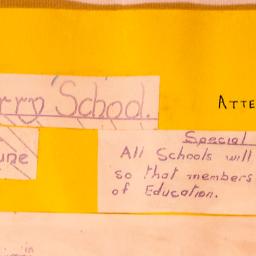 rry School.
ATTE
Special
une
All Schools will
so that members
of Education.